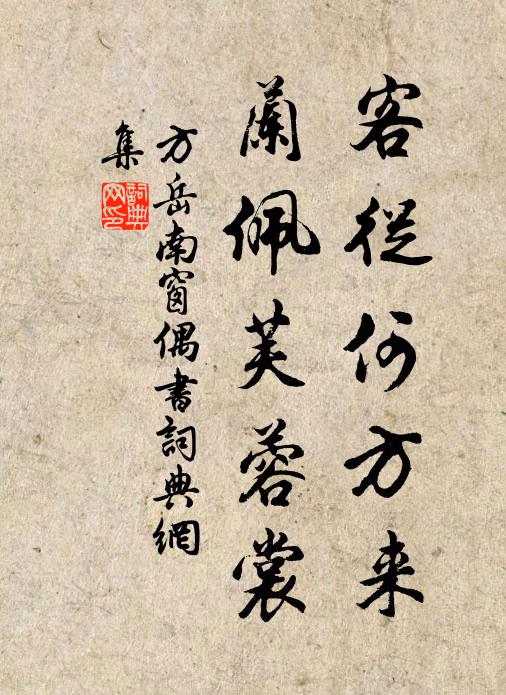 客從何方来
蘭佩芙蓉裳
方岳南窗偶書詞典網
集
詞典网印